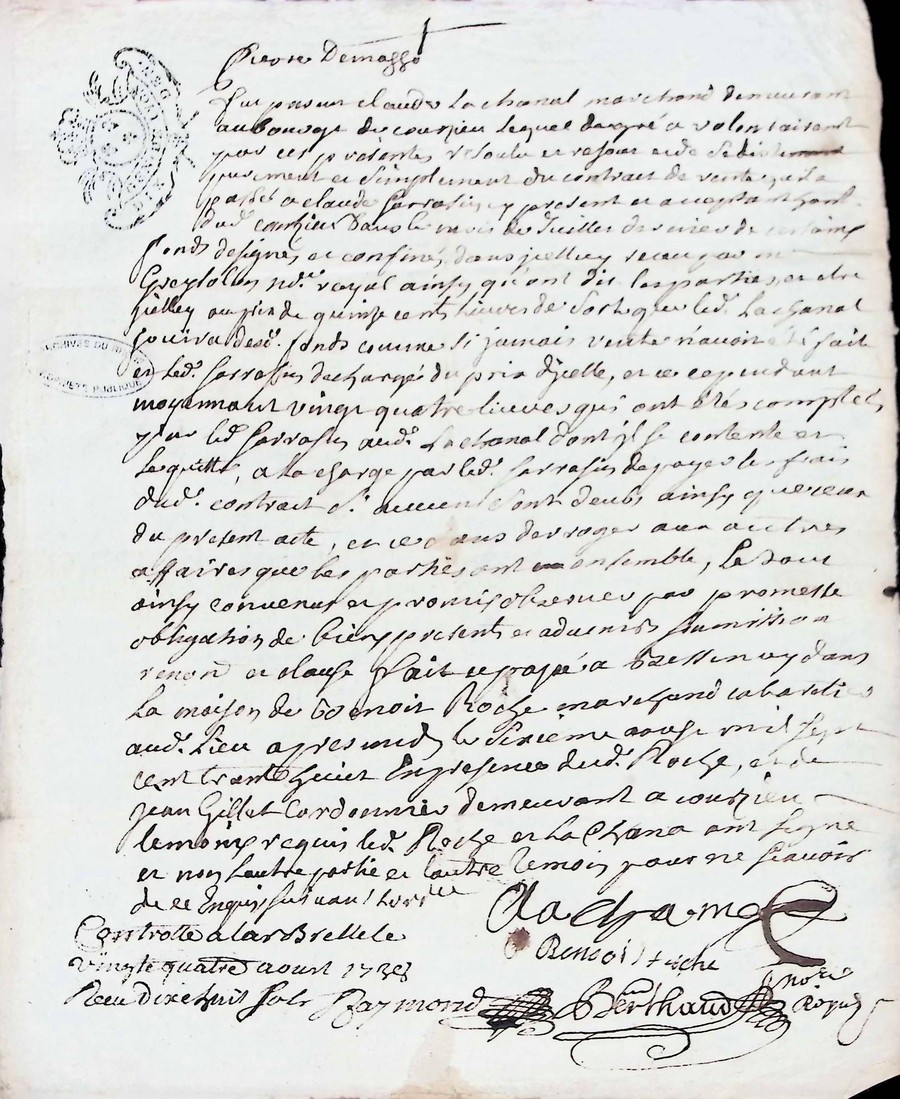 Pierre Demasso
Fut present claude Lachanal marchand demeurant
au bourge de courzieu lequel de gré a volontairement
par ces presentes resoult et resout et de se distement
purement et simplement du contract de vente par la
passé a claude Sarrasin y present et acceptant hant
dud. courzieu dans le mois de Juillet dernier de certains
fonds designés et confinés dans jcelluy receu par me
Greysolon nore. royal ainsy qu'ont dit les parties, et
jcelley au prix de quinze cents livres de sorte que led. Lachanal
jouira desd. fonds comme si jamais vente n'avoit été fait
et led. Sarrasin dechargé du prix d'jcelle, et ce cependant
moyennant vingt quatre livres qui ont étés comptées
par led. Sarrasin aud. Lachanal dont jl se contente et
Le quitte, a la charge par led. Sarrasin de payer les frais
dud. contract sy. aucuns sont deubs ainsy que ceux
du present acte, et ce sans derroger aux auttres
affaires que les parties ont ensemble, Le tout
ainsy convenus et promis observer par promesse
obligation de biens presents et advenirs soumission
renon et clause fait et passé a Bessenay dans
La maison de Benoit Roche marchand cabaretier
aud. Lieu apres midy le sixieme aoust mil sept
cent trante huict En presence dud. Roche, et de
Jean Gillet Cordonnier demeurant a courzieu
temoins requis led. Roche et La Chana ont signé
et non L'autre partie et l'autre temoin pour ne scavoir
de ce Enquis suivant L'ord.
La chana
Benoit roche
Controllé a Larbrelle le
vingte quatre aoust 1738
Receu dixe huit sols Raymond
Berthaud
nore
Royal